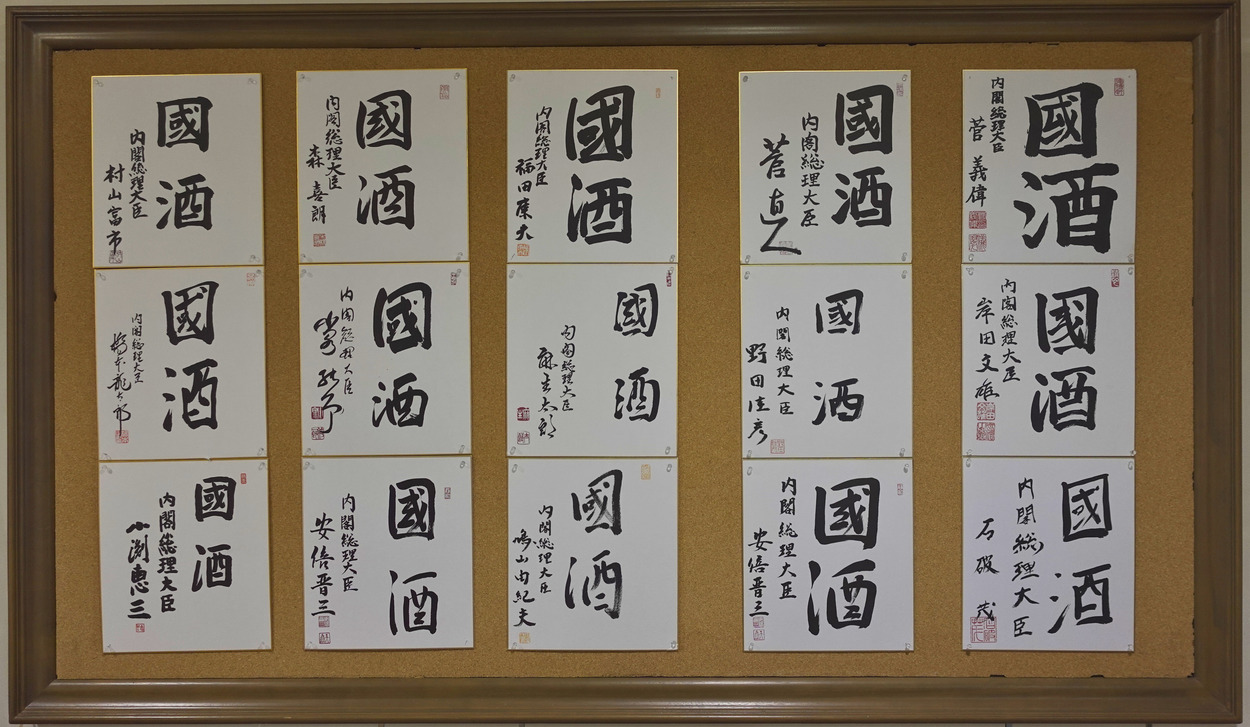 國酒
内閣総理大臣
村山富市
國酒
内閣総理大臣
橋本龍太郎
國酒
内閣総理大臣
小渕恵三
國酒
内閣総理大臣
森喜朗
國酒
内閣総理大臣
國酒
内閣総理大臣
安倍晋三
國酒
内閣総理大臣
福田康夫
國酒
内閣総理大臣
麻生太郎
國酒
内閣総理大臣
鳩山由紀夫
國酒
内閣総理大臣
菅直人
國酒
内閣総理大臣
野田佳彦
國酒
内閣総理大臣
安倍晋三
國酒
内閣総理大臣
菅義偉
國酒
内閣総理大臣
岸田文雄
國酒
内閣総理大臣
石破茂